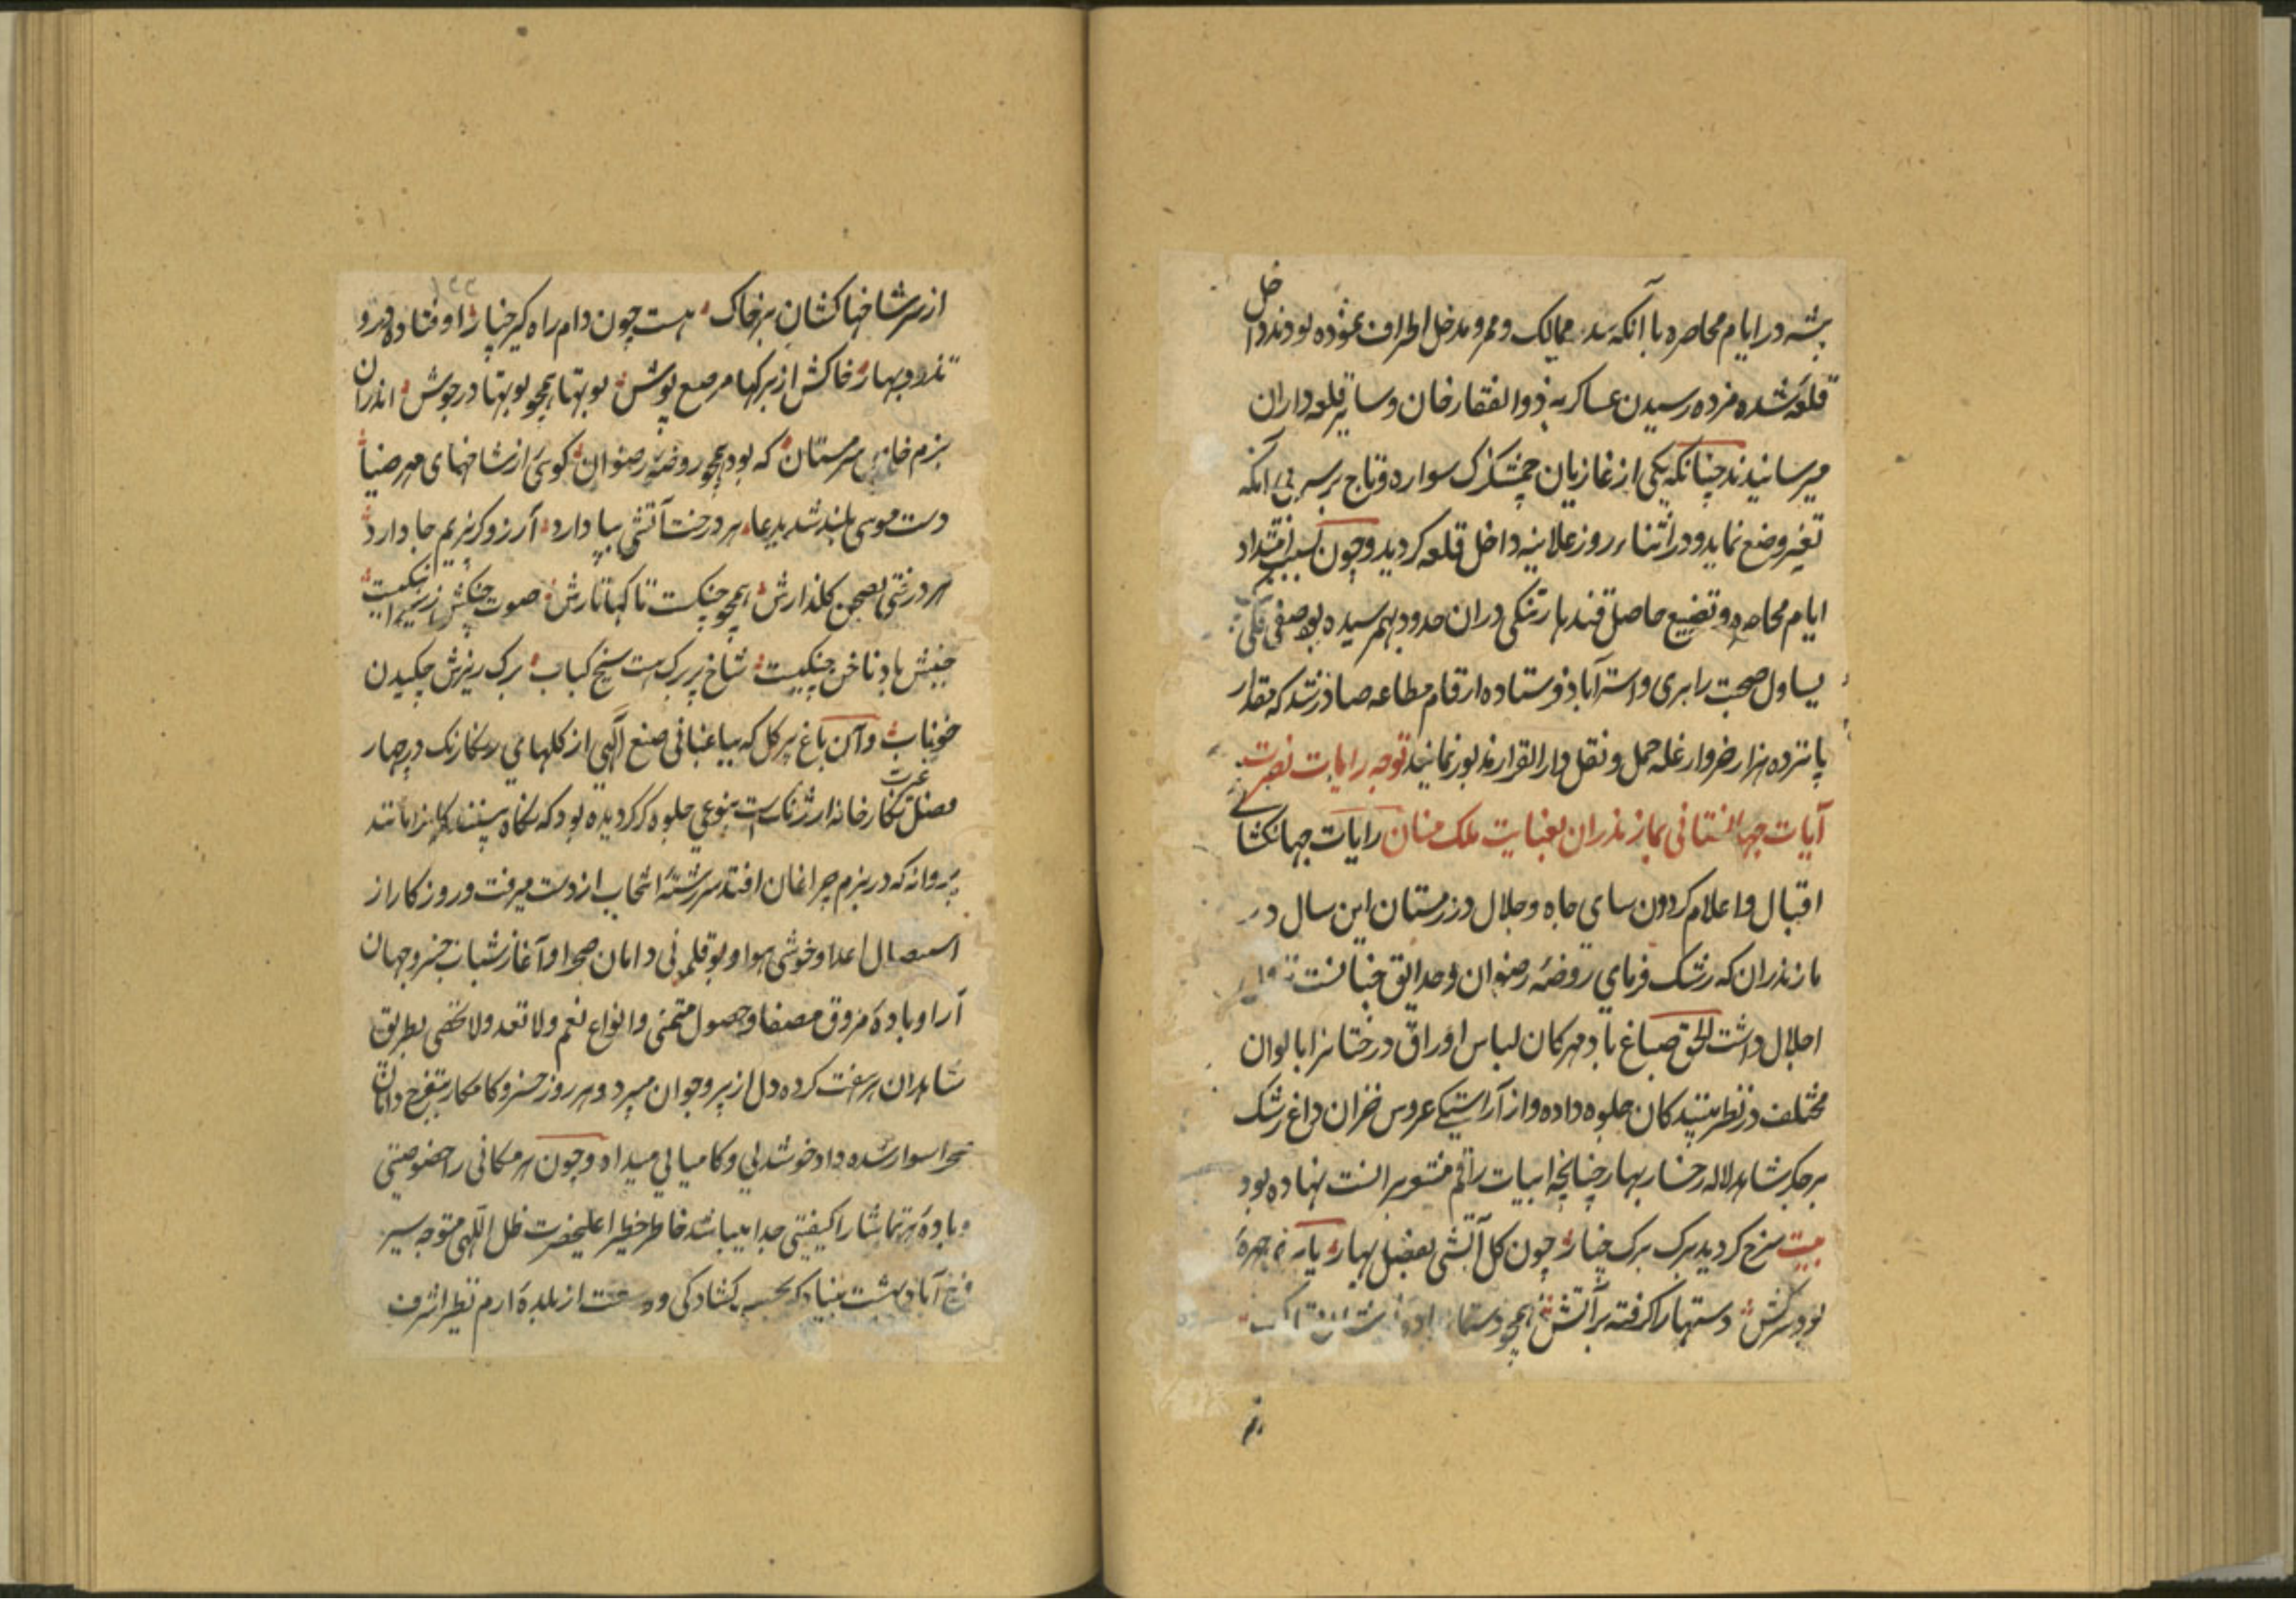 پشه در ایام محاصره با آنکه سد ممالک و ممر و مدخل اطراف نموده بودند داخل
قلعه شده مژده رسیدن عساکر به ذوالفقار خان و سایر قلعه داران
میرسانیدند چنانکه یکی از غازیان چمشکزک سواره و تاج بر سر بی آنکه
تغیر وضع نماید در اثناء روز علانیه داخل قلعه کردید و چون بسبب امتداد
ایام محاصره و تضییع حاصل قندهار تنکی در آن حدود بهم رسیده بود صفی قلی
یساول صحبت را بری و استرآباد فرستاده ارقام مطاعه صادر شد که مقدار
پانزده هزار خروار غله حمل و نقل دار القرار مذبور نمایند توجه رایات نصرت
آیات جهانستانی بمازندران بعنایت ملک منان رایات جهانکشای
اقبال و اعلام کردون سای جاه و جلال در زمستان این سال در
مازندران که رشک فرمای روضه رضوان و حدایق جنانست
اجلال داشت الحق صباغ باد مهرکان لباس اوراق درختانرا بالوان
مختلف در نظر بینندکان جلوه داده و از آراستیکی عروس خزان داغ رشک
بر جکر شاهد لاله رخسار بهار چنانچه ابیات راقم منشور بر انست نهاده بود
بیت سرخ کردید برک برک چنار چون کل آتشی بفصل بهار چهره
بود سرکش دستها را کرفته بر آتش همچو
از سر شاخها کشان بر خاک هست چون دام راه کیر چنار اوفتاده درو
تذرو بهار خاکش از برکها مرصع پوش بوتها همچو بوتها در جوش اندران
بزم خانه سرمستان که بود همچو روضه رضوان کوئی از شاخهای مهر ضیا
دست موسی بلند شد بدعا هر درخت آتشی بپا دارد آرزو کر بزیم جا دارد
هر درختی بصحن کلذارش همچو چنکست تاکها تارش صوت چنکش ز
جنبش باد ناخن چنکیست شاخ پر برک هست سیخ کباب برک ریزش چکیدن
خوناب و آن باغ پر کل که بباغبانی صنع آلهی از کلهای رنکارنک در چهار
فصل غیرت نکارخانه ارژنک است بنوعی جلوه کر کردیده بود که نکاه بینندکانرا مانند
پروانه که در بزم چراغان افتد سر رشته انتخاب از دست میرفت و روز کار از
استیصال اعدا و خوشی هوا و بوقلمونی دامان صحرا و آغاز شباب خسرو جهان
آرا و باده مروق مصفا و حصول متمنی و انواع نعم ولا تعد ولا تحصی بطریق
شاهدان هر هفت کرده دل از پیر و جوان میبرد و هر روز خسرو کامکار بتفرج دامان
صحرا سوار شده داد خوشدلی و کامیابی میداد و چون هر مکانی را خصوصیتی
و باده هر تماشا را کیفیتی جدا میباشد خاطر خطیر اعلیحضرت ظل اللهی متوجه سیر
فرح آباد بهشت بنیاد که بحسب کشادکی و وسعت از بلده ارم نظیر اشرف